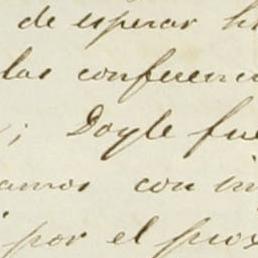 de esperar h
las conferenc
; Doyle fue
amos con in
por el prox